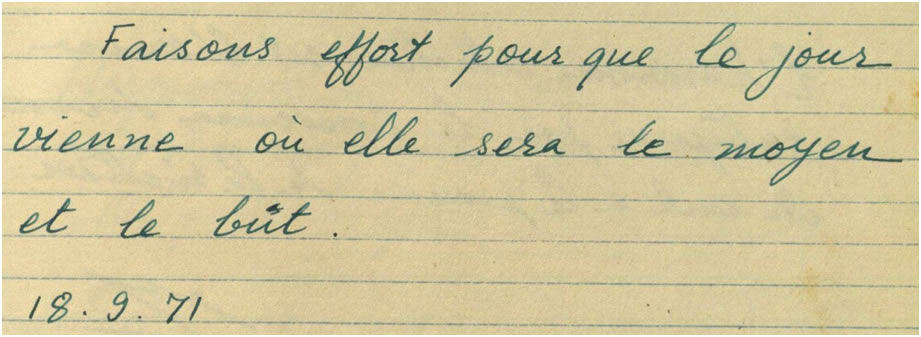 Faisons effort pour que le jour
vienne où elle sera le moyen
et le bût.
18.9.71